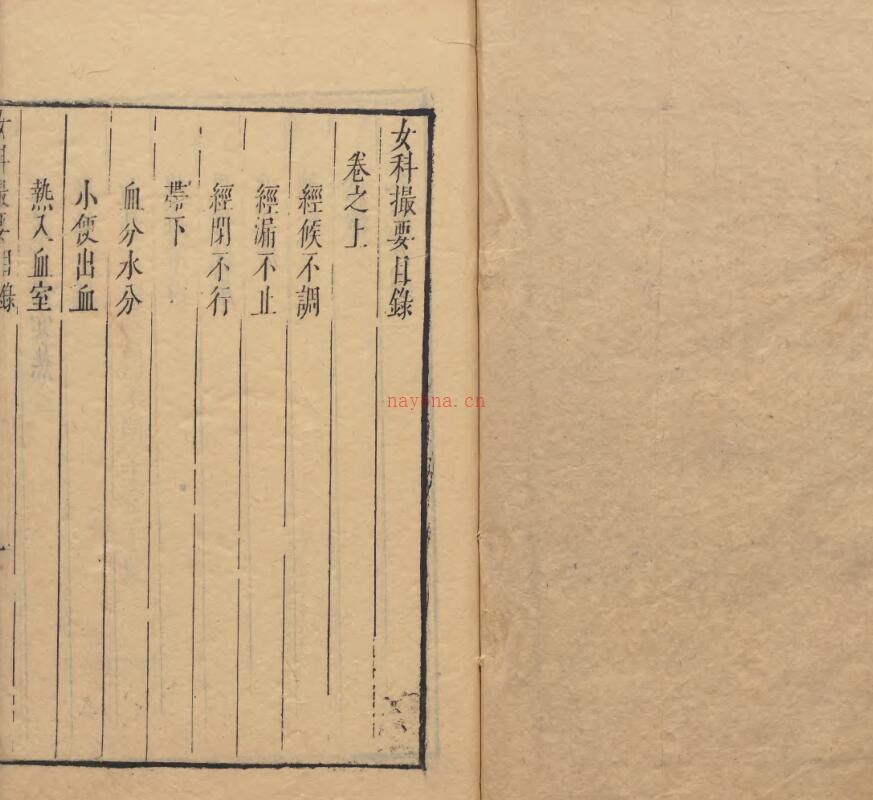 女科撮要目錄
卷之上
經候不調
經漏不止
經閉不行
帶下
血分水分
小便出血
熱入血室
女科撮要目錄
nayona.cn